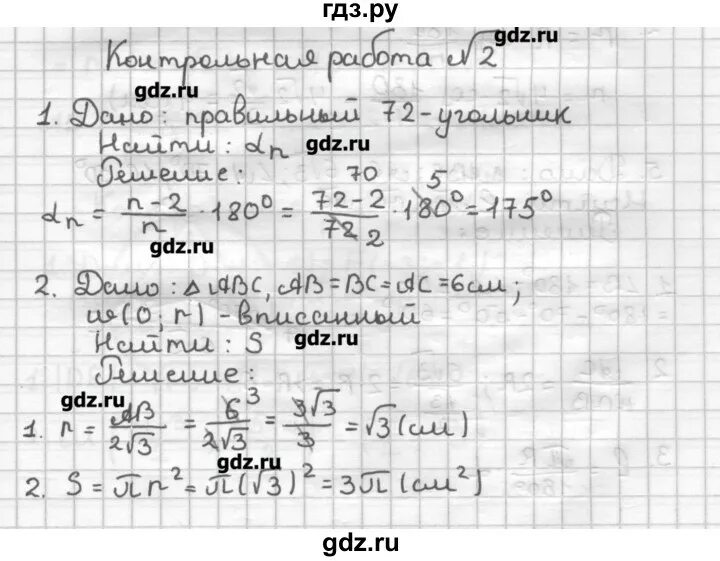 гдз.ру
Контрольная работа √2
gdz.ru
gdz.ru
1. Дано: правильный 72-угольник
Найти: αn
gdz.ru
Решение:
αn = n-2/n · 180° = 72-2/72 · 180° = 175°
70 5
2
gdz.ru
2. Дано: △ABC, AB=BC=AC=6см;
ω(O; r) - вписанный
Найти: S
gdz.ru
Решение:
gdz.ru
1. r = AB/2√3 = 6/2√3 = 3√3/3 = √3 (см)
3
gdz.ru
2. S = πr² = π(√3)² = 3π (см²)
gdz.ru